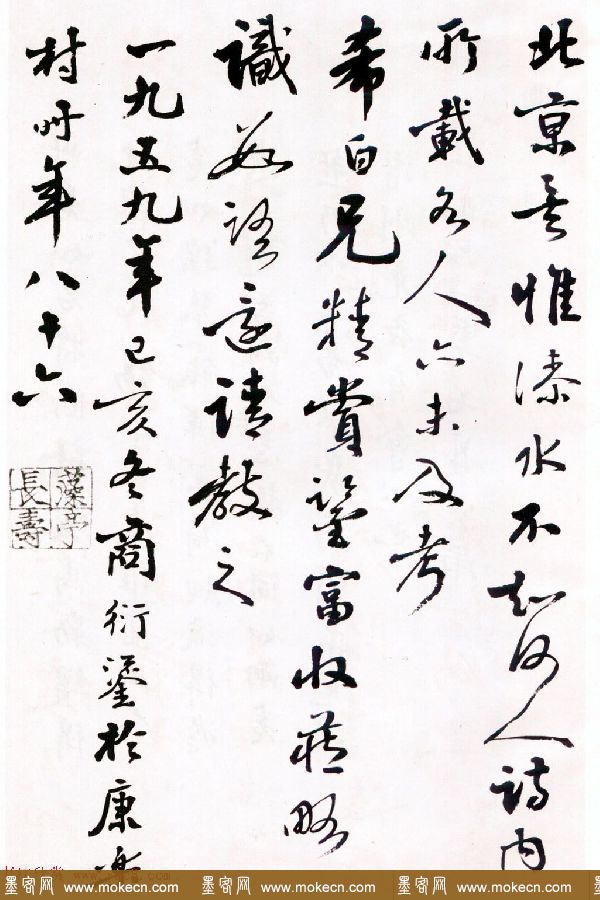 北京惟水不知何人詩内
所載各人亦未及考
希白兄精賞鑒富收藏略
識數語還請教之
一九五九年己亥冬商衍鎏於康樂
村時年八十六
藻亭
長壽
墨客网 www.mokecn.com 墨客网 www.mokecn.com 墨客网 www.mokecn.com